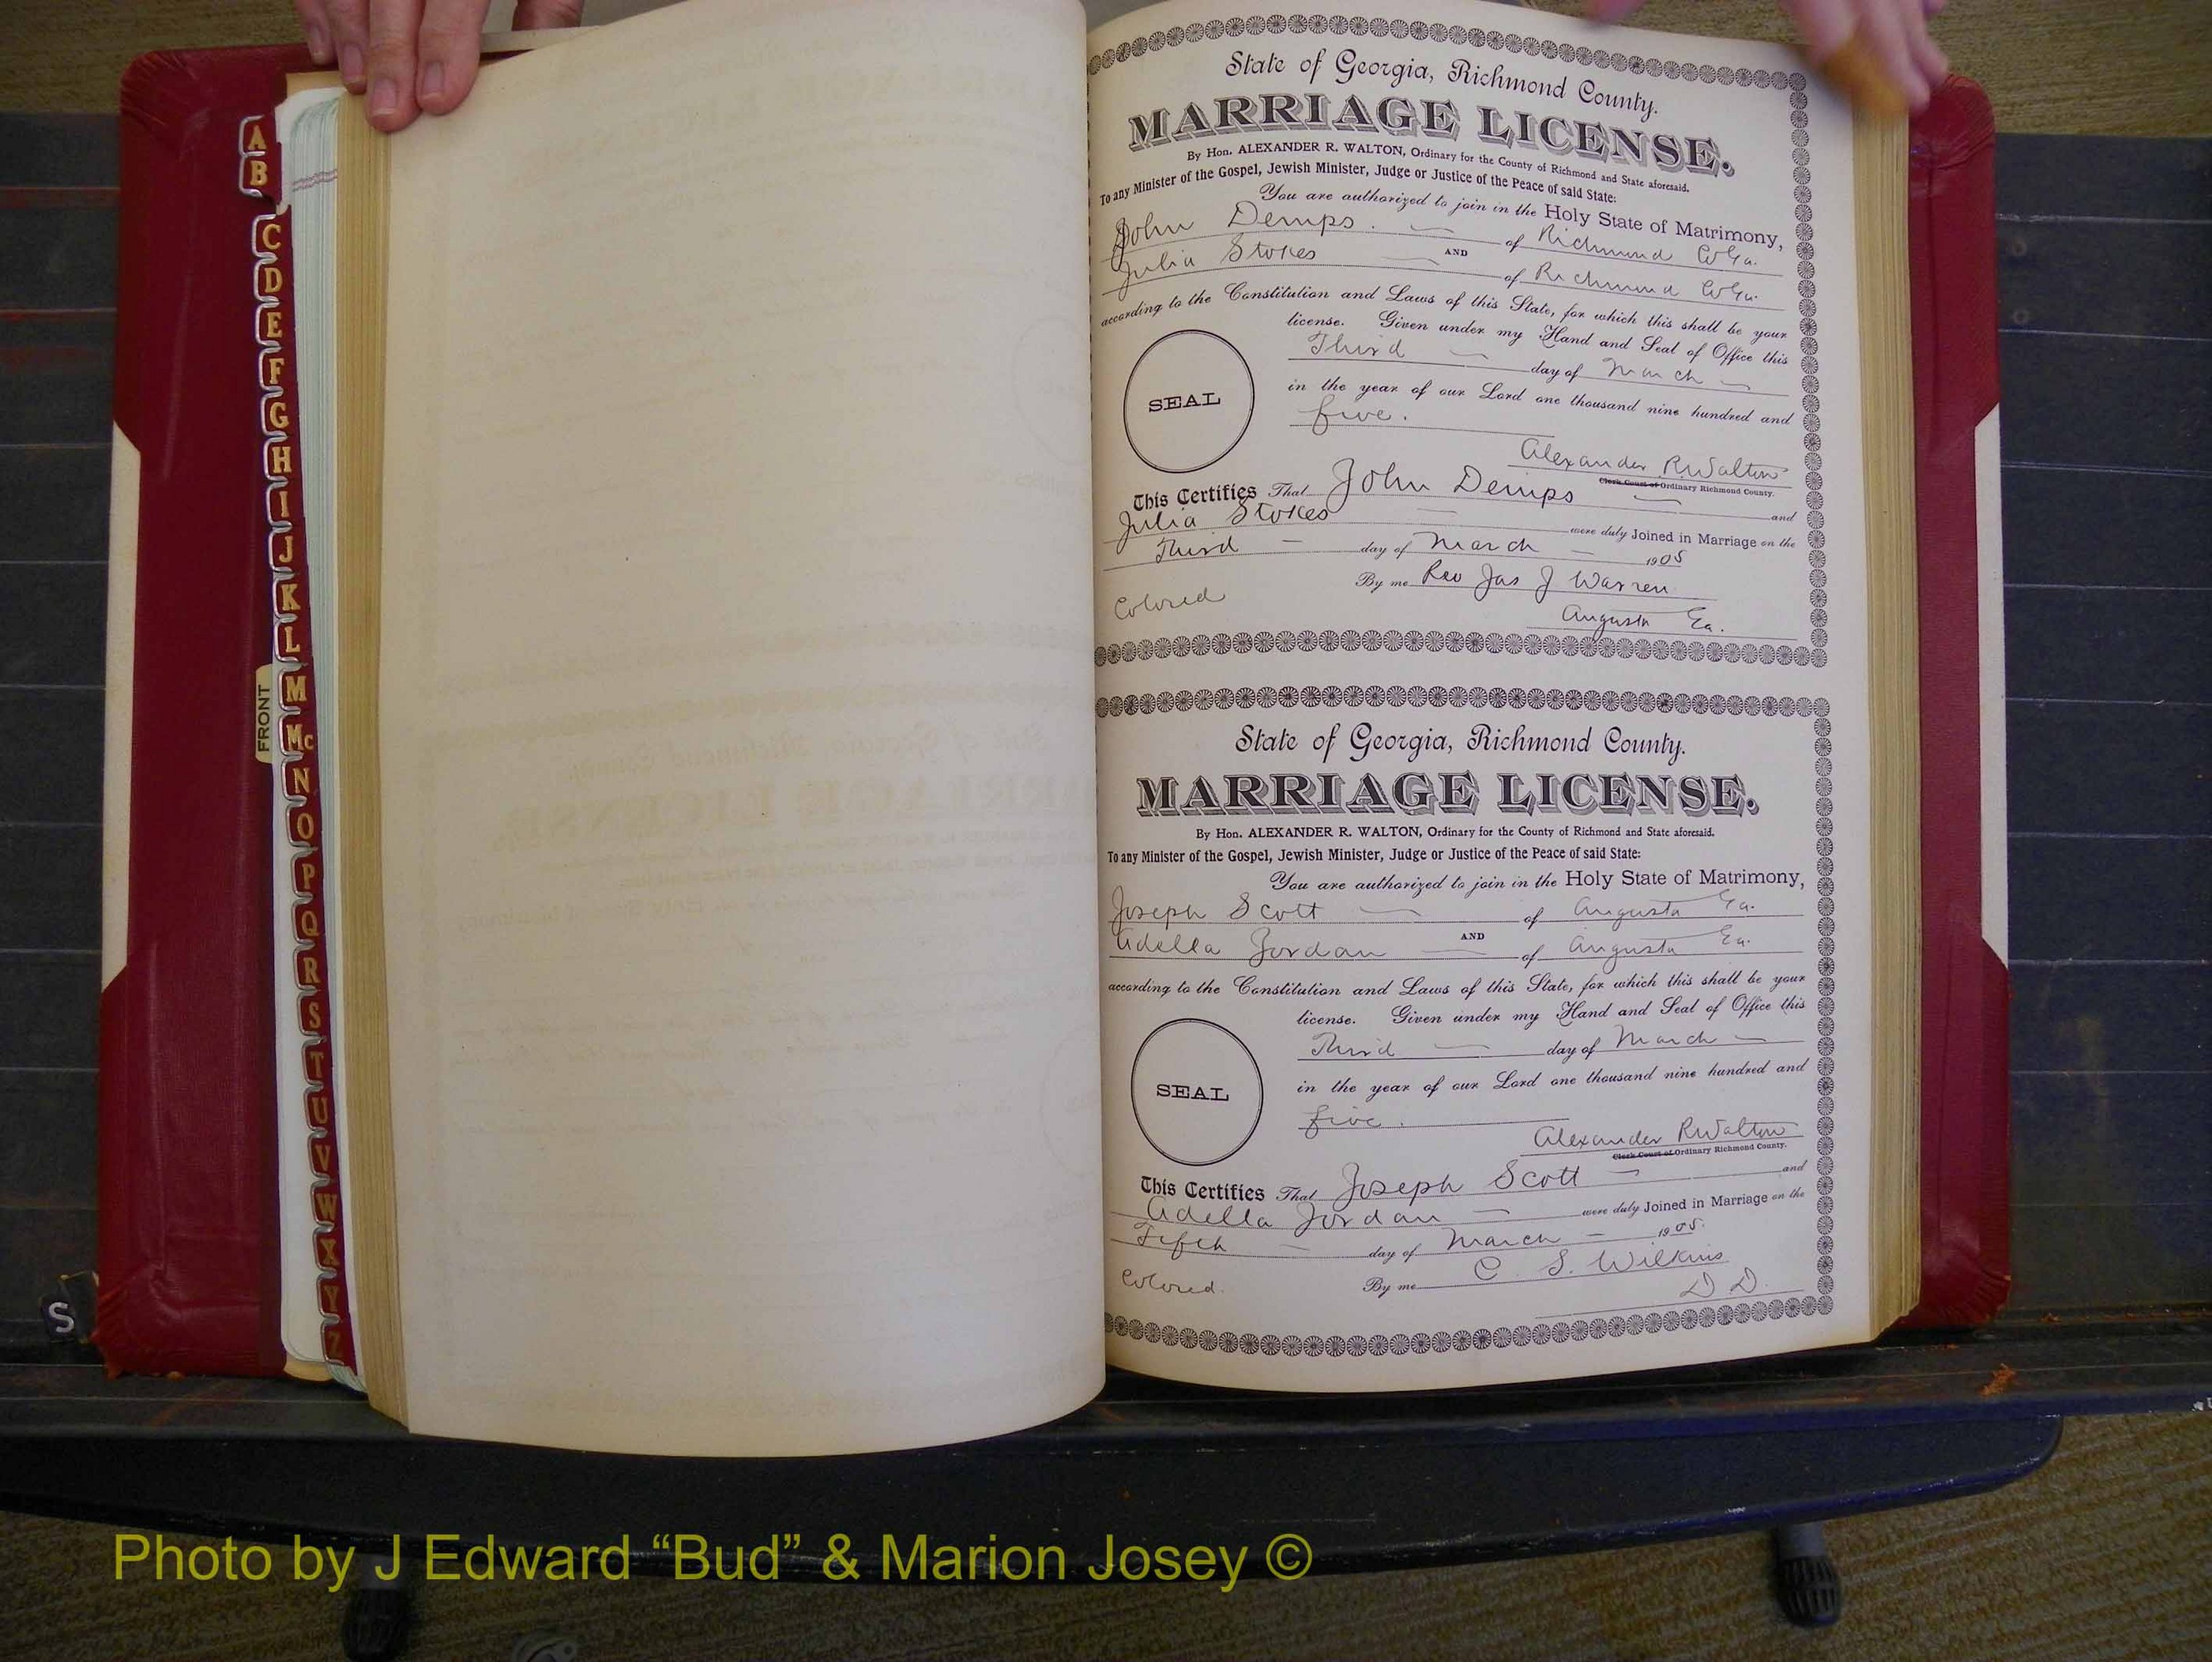 A
B
C
D
E
F
G
H
I
J
K
L
M
Mc
N
O
P
Q
R
S
T
U
V
W
X
Y
Z
FRONT
S
State of Georgia, Richmond County.
MARRIAGE LICENSE.
By Hon. ALEXANDER R. WALTON, Ordinary for the County of Richmond and State aforesaid.
To any Minister of the Gospel, Jewish Minister, Judge or Justice of the Peace of said State:
You are authorized to join in the Holy State of Matrimony,
John Demps. of Richmond Co Ga.
AND
Julia Stokes of Richmond Co Ga.
according to the Constitution and Laws of this State, for which this shall be your
license. Given under my Hand and Seal of Office this
Third day of March
in the year of our Lord one thousand nine hundred and
five.
SEAL
Alexander R Walton
Clerk Court of Ordinary Richmond County.
This Certifies That John Demps and
Julia Stokes were duly Joined in Marriage on the
Third day of March 1905
By me Rev Jas J Warren
Colored
Augusta Ga.
State of Georgia, Richmond County.
MARRIAGE LICENSE.
By Hon. ALEXANDER R. WALTON, Ordinary for the County of Richmond and State aforesaid.
To any Minister of the Gospel, Jewish Minister, Judge or Justice of the Peace of said State:
You are authorized to join in the Holy State of Matrimony,
Joseph Scott of Augusta Ga.
AND
Adella Jordan of Augusta Ga.
according to the Constitution and Laws of this State, for which this shall be your
license. Given under my Hand and Seal of Office this
Third day of March
in the year of our Lord one thousand nine hundred and
five.
SEAL
Alexander R Walton
Clerk Court of Ordinary Richmond County.
This Certifies That Joseph Scott and
Adella Jordan were duly Joined in Marriage on the
Fifth day of March 1905.
By me C. S. Wilkins
Colored.
D D.
Photo by J Edward “Bud” & Marion Josey ©